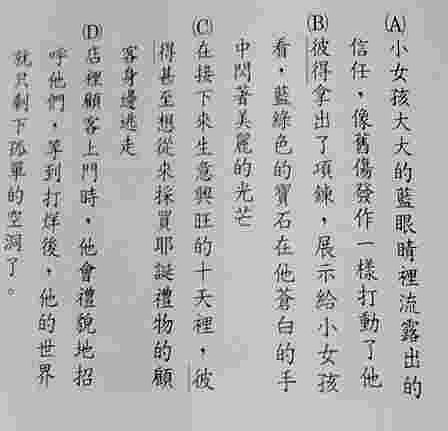 (A)小女孩大大的藍眼睛裡流露出的
信任，像舊傷發作一樣打動了他
(B)彼得拿出了項鍊，展示給小女孩
看，藍綠色的寶石在他蒼白的手
中閃著美麗的光芒
(C)在接下來生意興旺的十天裡，彼
得甚至想從來採買耶誕禮物的顧
客身邊逃走
(D)店裡顧客上門時，他會禮貌地招
呼他們，等到打烊後，他的世界
就只剩下孤單的空洞了。